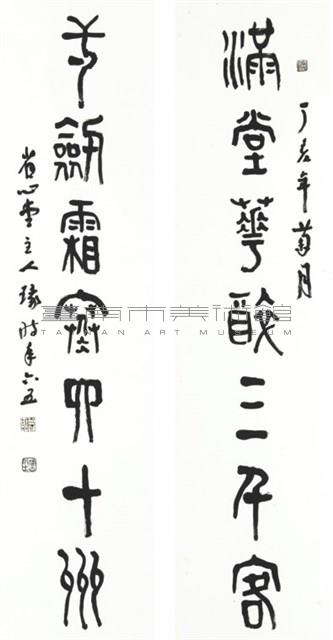 丁亥年菊月
滿堂華醉三千客
一劍霜寒四十州
省心堂主人時年六五
臺南市美術館
TAINAN ART MUSEUM